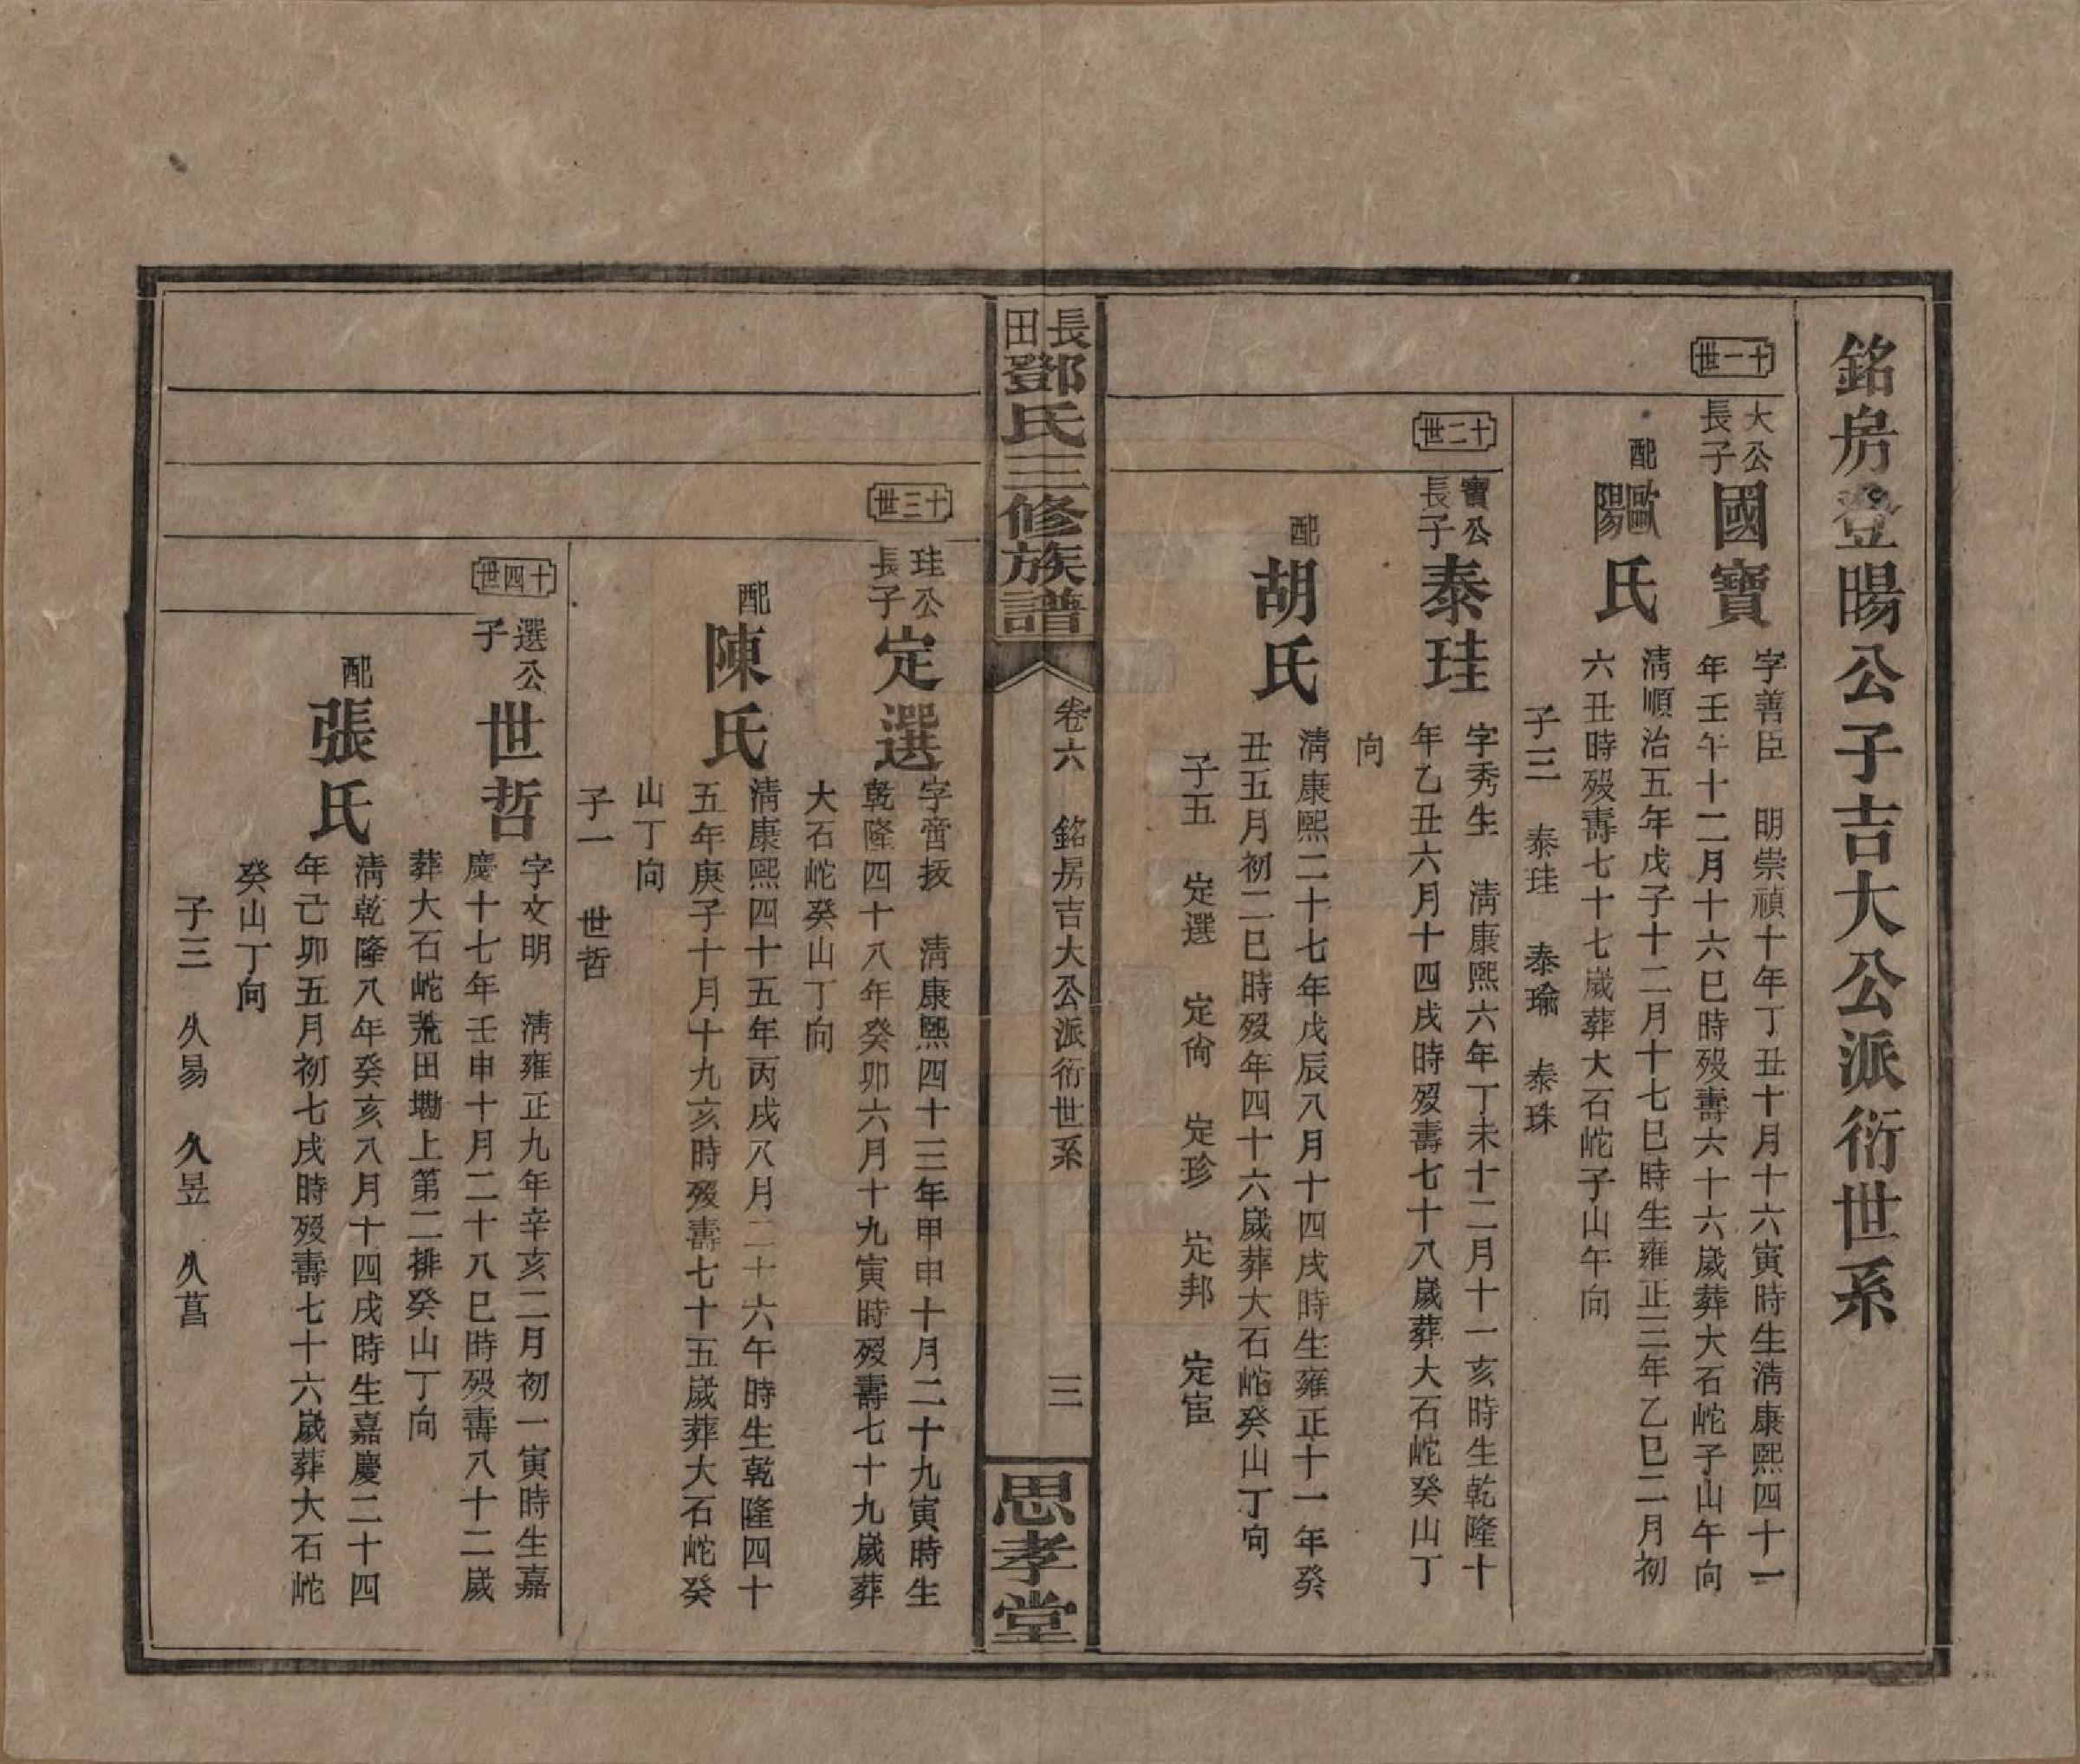 銘房登暘公子吉大公派衍世系
十一世
大公長子
國寶
字善臣　明崇禎十年丁丑十月十六寅時生淸康熙四十一
年壬午十二月十六巳時歿壽六十六歲葬大石岮子山午向
配
歐陽氏
淸順治五年戊子十二月十七巳時生雍正三年乙巳二月初
六丑時歿壽七十七歲葬大石岮子山午向
子三　泰珪　泰瑜　泰珠
十二世
寶公長子
泰珪
字秀生　淸康熙六年丁未十二月十一亥時生乾隆十
年乙丑六月十四戌時歿壽七十八歲葬大石岮癸山丁
向
配
胡氏
淸康熙二十七年戊辰八月十四戌時生雍正十一年癸
丑五月初二巳時歿年四十六歲葬大石岮癸山丁向
子五　定選　定尙　定珍　定邦　定宦
長田鄧氏三修族譜
卷六　銘房吉大公派衍世系
三
思孝堂
十三世
珪公長子
定選
字啻拔　淸康熙四十三年甲申十月二十九寅時生
乾隆四十八年癸卯六月十九寅時歿壽七十九歲葬
大石岮癸山丁向
配
陳氏
淸康熙四十五年丙戌八月二十六午時生乾隆四十
五年庚子十月十九亥時歿壽七十五歲葬大石岮癸
山丁向
子一　世哲
十四世
選公子
世哲
字文明　淸雍正九年辛亥二月初一寅時生嘉
慶十七年壬申十月二十八巳時歿壽八十二歲
葬大石岮荒田墈上第二排癸山丁向
配
張氏
淸乾隆八年癸亥八月十四戌時生嘉慶二十四
年己卯五月初七戌時歿壽七十六歲葬大石岮
癸山丁向
子三　久易　久昱　久菖